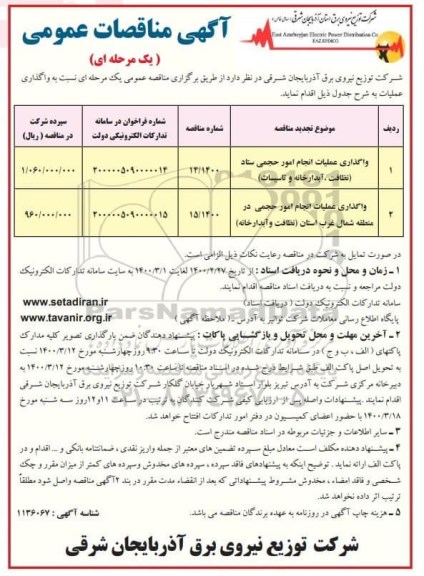 شرکت توزیع نیروی برق استان آذربایجان شرقی (سهامی خاص)
East Azarbaijan Electric Power Distribution Co.
EAZ.EPDCO
آگهی مناقصات عمومی
( یک مرحله ای )
شرکت توزیع نیروی برق آذربایجان شرقی در نظر دارد از طریق برگزاری مناقصه عمومی یک مرحله ای نسبت به واگذاری
عملیات به شرح جدول ذیل اقدام نماید.
ردیف موضوع تجدید مناقصه شماره مناقصه شماره فراخوان در سامانه تدارکات الکترونیکی دولت سپرده شرکت در مناقصه ( ریال)
۱ واگذاری عملیات انجام امور حجمی ستاد (نظافت ،آبدارخانه و تاسیسات) ۱۴/۱۴۰۰ ۲۰۰۰۰۰۵۰۹۰۰۰۰۰۱۴ ۱/۰۶۰/۰۰۰/۰۰۰
۲ واگذاری عملیات انجام امور حجمی در منطقه شمال غرب استان (نظافت و آبدارخانه) ۱۵/۱۴۰۰ ۲۰۰۰۰۰۵۰۹۰۰۰۰۰۱۵ ۹۶۰/۰۰۰/۰۰۰
در صورت تمایل به شرکت در مناقصه رعایت نکات ذیل الزامی است.
۱ ـ زمان و محل و نحوه دریافت اسناد : از تاریخ ۱۴۰۰/۲/۲۷ لغایت ۱۴۰۰/۳/۱ به سایت سامانه تدارکات الکترونیک
دولت مراجعه و نسبت به دریافت اسناد مناقصه اقدام نمایند.
سامانه تدارکات الکترونیک دولت ( دریافت اسناد) www.setadiran.ir
پایگاه اطلاع رسانی معاملات شرکت توانیر به آدرس :( ملاحظه آگهی ) www.tavanir.org.ir
۲ ـ آخرین مهلت و محل تحویل و بازگشایی پاکات : پیشنهاد دهندگان ضمن بارگذاری تصویر کلیه مدارک
پاکتهای ( الف ، ب و ج ) در سامانه تدارکات الکترونیک دولت تا ساعت ۹:۳۰ روز چهارشنبه مورخ ۱۴۰۰/۳/۱۲ نسبت
به تحویل اصل پاکت الف طبق شرایط درج شده در اسناد مناقصه تا ساعت ۱۰:۳۰ روز چهارشنبه مورخ ۱۴۰۰/۳/۱۲ به
دبیرخانه مرکزی شرکت به آدرس تبریز بلوار استاد شهریار خیابان گلکار شرکت توزیع نیروی برق آذربایجان شرقی
اقدام نمایند . پیشنهادات واصله پس از ارزیابی کیفی شرکت کنندگان به ترتیب در ساعت ۱۱ و ۱۲ روز سه شنبه مورخ
۱۴۰۰/۳/۱۸ با حضور اعضای کمیسیون در دفتر امور تدارکات افتتاح خواهد شد.
۳ ـ سایر اطلاعات و جزئیات مربوطه در اسناد مناقصه مندرج است.
۴ ـ پیشنهاد دهنده مکلف است معادل مبلغ سپرده تضمین های معتبر از جمله واریز نقدی ، ضمانتنامه بانکی و ... اقدام و در
پاکت الف ارائه نماید . توضیح اینکه به پیشنهادهای فاقد سپرده ، سپرده های مخدوش وسپرده های کمتر از میزان مقرر و چک
شخصی و فاقد امضاء ، مخدوش مشروط پیشنهاداتی که بعد از انقضاء مدت مقرر در بند ۲ آگهی مناقصه واصل شود مطلقاً
ترتیب اثر داده نخواهد شد.
۵ ـ هزینه چاپ آگهی در روزنامه به عهده برندگان مناقصه می باشد. شناسه آگهی : ۱۱۳۶۰۶۷
شرکت توزیع نیروی برق آذربایجان شرقی